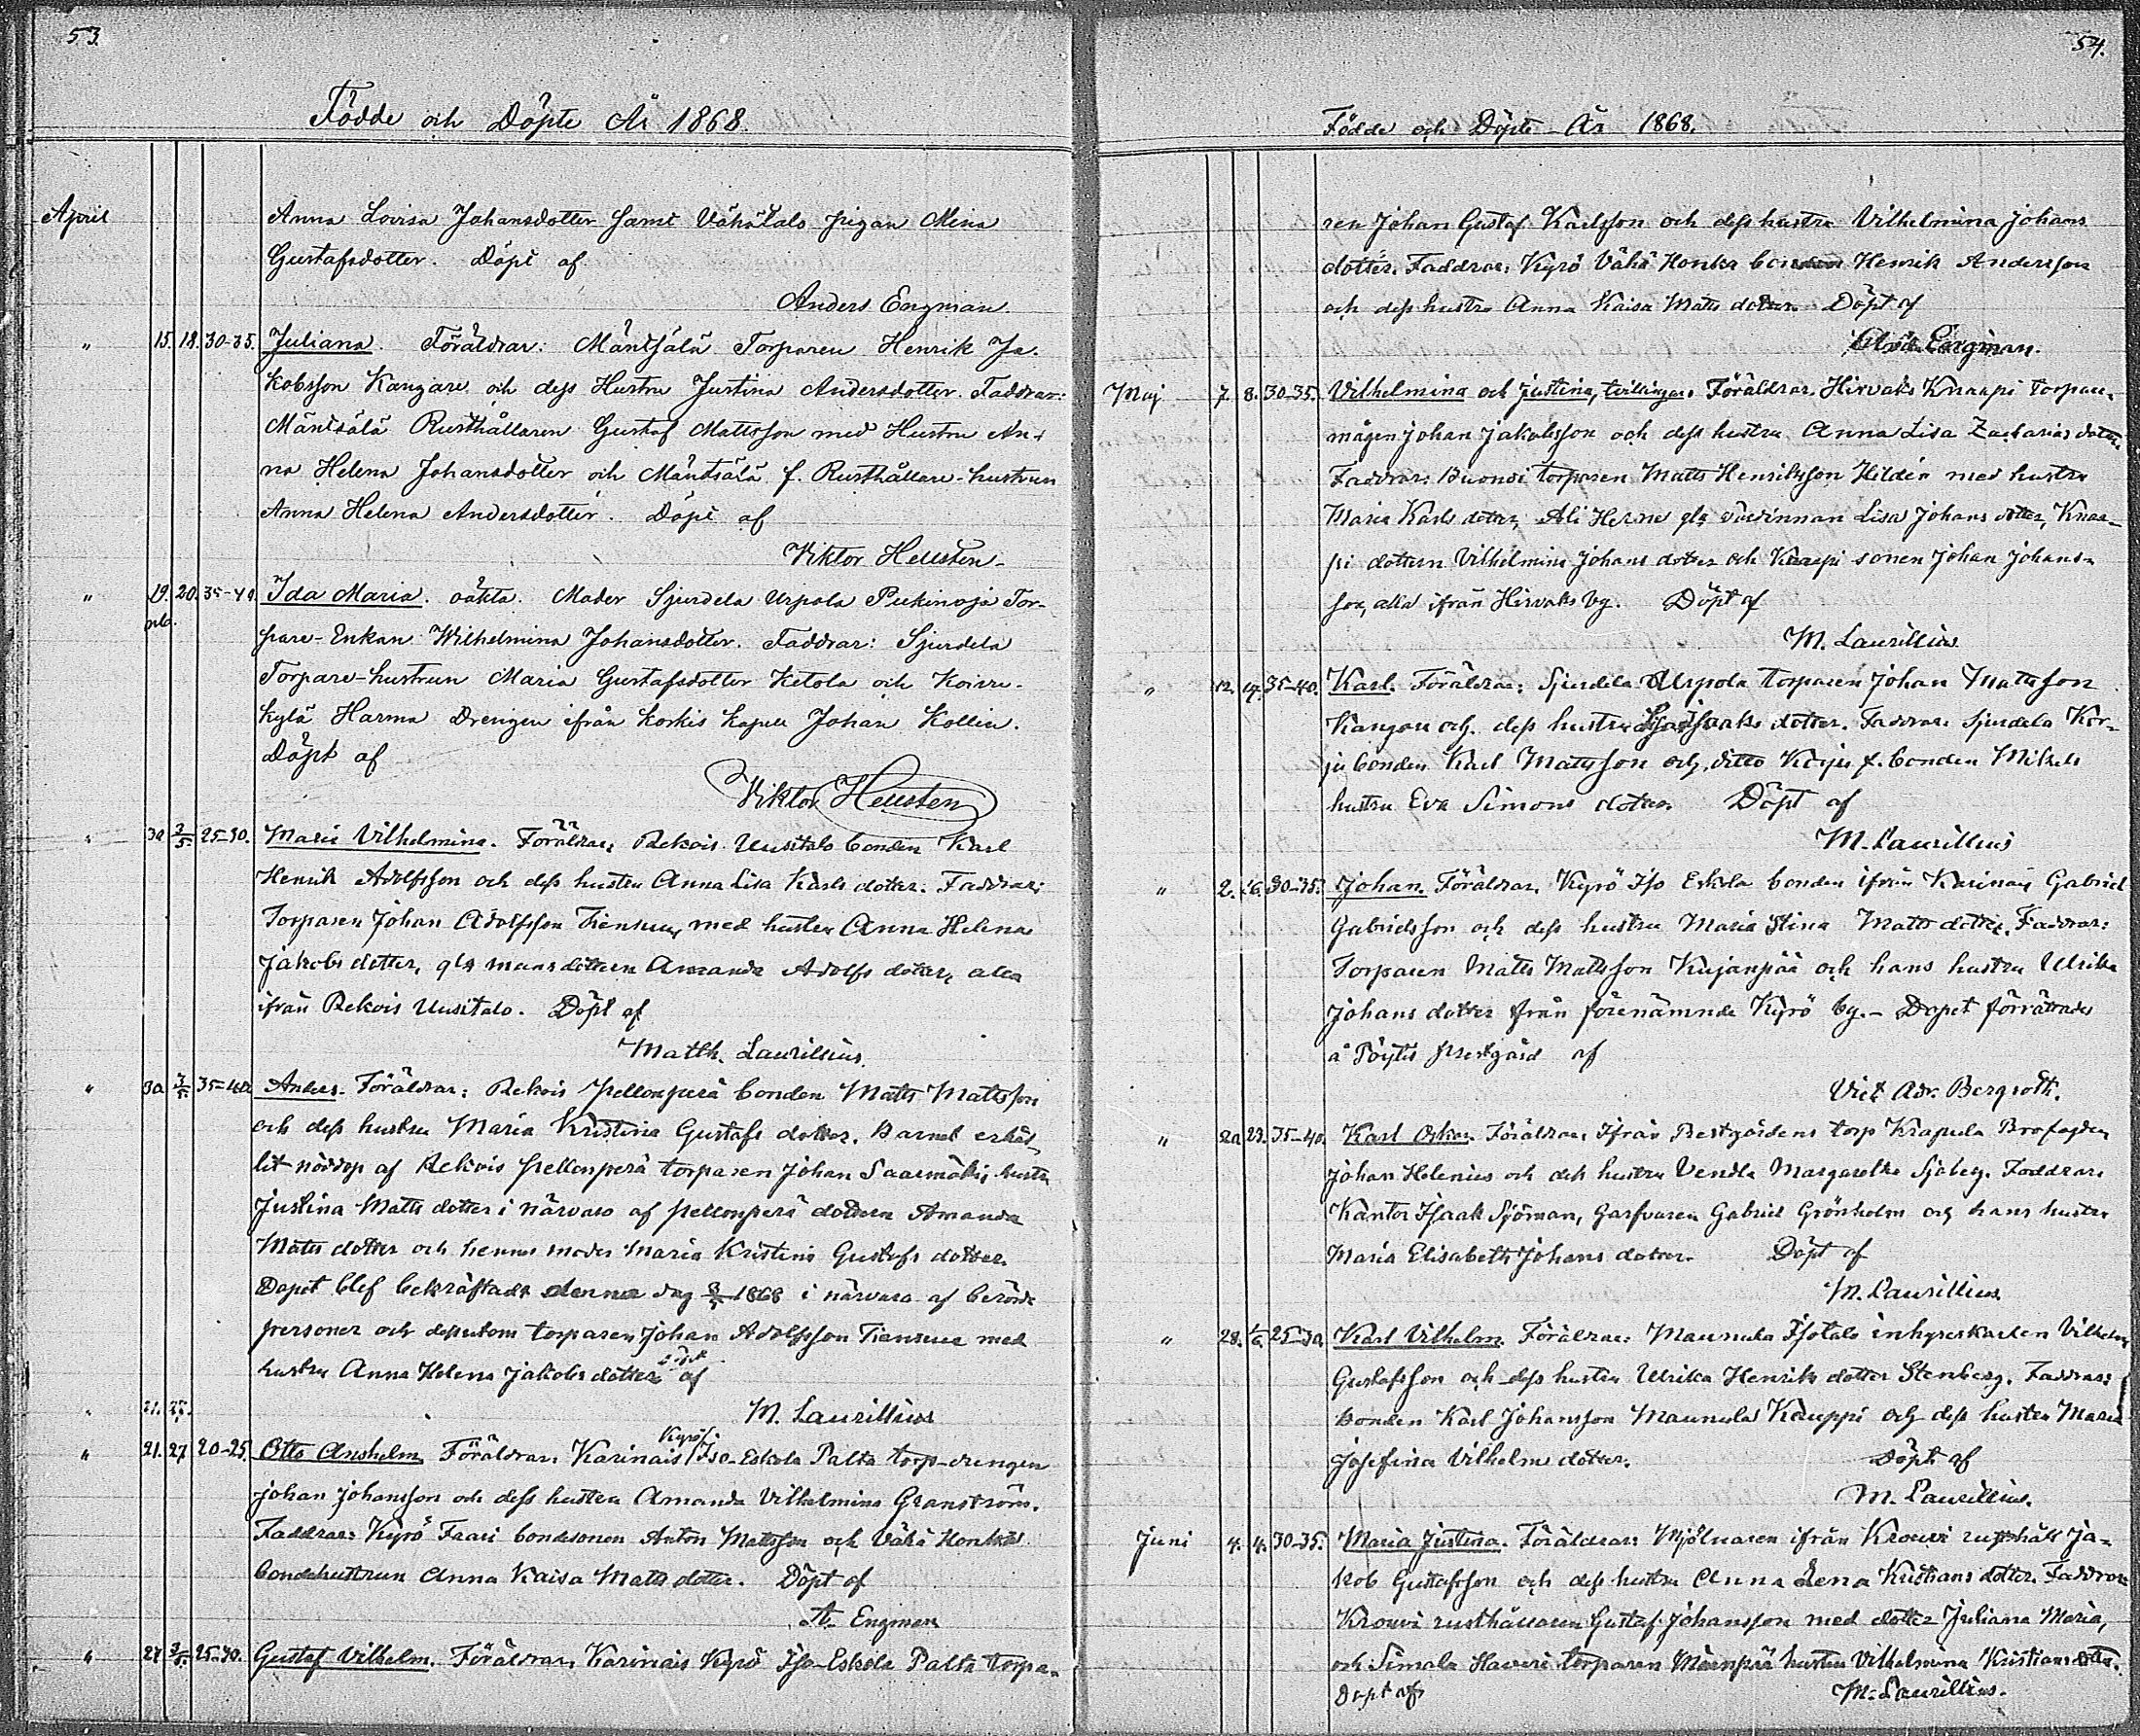 53.
Födde och Döpte År 1868.
April
Anna Lovisa Johansdotter samt Vähätalo pigan Mina
Gustafsdotter. Döpt af
Anders Engman.
" 15. 18. 30-35. Juliana. Föräldrar: Mäntsälä Torparen Henrik Ja-
kobsson Kangare och dess Hustru Justina Andersdotter. Faddrar:
Mäntsälä Rusthållaren Gustaf Mattsson med Hustru An-
na Helena Johansdotter och Mäntsälä f. Rusthållare-hustrun
Anna Helena Andersdotter. Döpt af
Viktor Heusten
" 19. 20. 35-40. Ida Maria. oäkta. Moder Sjurdela Urpola Pukinoja Tor-
pare-Enkan Wilhelmina Johansdotter. Faddrar: Sjurdela
Torpare-hustrun Maria Gustafsdotter Ketola och Koivu-
kylä Harma Drengen ifrån Korkis Kapell Johan Kollin.
Döpt af
Viktor Heusten
" 30 3/5 25-30. Maria Vilhelmina. Föräldrar: Rekois Uusitalo bonden Karl
Henrik Adolfsson och dess hustru Anna Lisa Karls dotter. Faddrar:
Torparen Johan Adolfsson Tiensuu, med hustru Anna Helena
Jakobs dotter, gla mans dottern Amanda Adolfs dotter, alla
ifrån Rekois Uusitalo. Döpt af
Matth. Laurillius.
" 30 3/5 35-40 Anders. Föräldrar: Rekois Pellonperä bonden Matts Mattsson
och dess hustru Maria Kristina Gustafs dotter. Barnet erhål-
lit nöddop af Rekois Pellonperä torparen Johan Saarmäkis hustru
Justina Matts dotter i närvaro af Pellonperä dottern Amanda
Matts dotter och hennes moder Maria Kristina Gustafs dotter.
Dopet blef bekräftadt denna dag 3/5 1868 i närvaro af berörde
personer och dessutom torparen Johan Adolfsson Tiensuu med
hustru Anna Helena Jakobs dotter af
M. Laurillius
" 21. 27.
" 21. 27 20-25. Otto Anshelm. Föräldrar: Karinais Kyrö Iso-Eskola Palta torp-drengen
Johan Johansson och dess hustru Amanda Vilhelmina Granström.
Faddrar: Kyrö Faari bondesonen Anton Mattsson och Vähä Honka
bondehustrun Anna Kaisa Matts dotter. Döpt af
A. Engman
" 27 3/5. 25-30. Gustaf Vilhelm. Föräldrar: Karinais Kyrö Iso-Eskola Palta torpa-
54.
Födde och Döpte År 1868.
ren Johan Gustaf Karlsson och dess hustru Vilhelmina Johans
dotter. Faddrar: Kyrö Vähä Honka bonden Henrik Andersson
och dess hustru Anna Kaisa Matts dotter. Döpt af
Engman.
Maj 7. 8. 30-35. Vilhelmina och Justina, tvillingar. Föräldrar: Hirvaks Knaapi torpare-
mågen Johan Jakobsson och dess hustru Anna Lisa Zacharias dotter.
Faddrar: torparen Matts Henriksson Hildén med hustru
Maria Karls dotter, Ali Herne gla värdinnan Lisa Johans dotter, Knaa-
pi dottern Vilhelmina Johans dotter och Knaapi sonen Johan Johans-
son, alla ifrån Hirvaks by. Döpt af
M. Laurillius
" 12. 17. 35-40. Karl. Föräldrar: Sjurdela Urpola torparen Johan Mattsson
Kangas och dess hustru Lisa Isaaks dotter. Faddrar: Sjurdela Kor-
ju bonden Karl Mattsson och ditto Korju f. bonden Mikels
hustru Eva Simons dotter. Döpt af
M. Laurillius
" 2. 16. 30-35. Johan. Föräldrar: Kyrö Iso Eskola bonden ifrån Karinais Gabriel
Gabrielsson och dess hustru Maria Stina Matts dotter. Faddrar:
Torparen Matts Mattsson Kujanpää och hans hustru Ulrika
Johans dotter från förenämnde Kyrö by.- Dopet förrättades
å Pöytis prestgård af
Vict. Adr. Bergroth.
" 20 23. 35-40. Karl Oskar. Föräldrar: Ifrån Prestgårdens torp Krapula Brofogden
Johan Helenius och dess hustru Vendla Margaretha Sjöberg. Faddrar:
Kantor Isaak Sjöman, garfvaren Gabriel Grönholm och hans hustru
Maria Elisabeth Johans dotter. Döpt af
M. Laurillius.
" 28. 1/6. 25-30 Karl Vilhelm. Föräldrar: Maunula Isotalo inhyseskarlen Vilhelm
Gustafsson och dess hustru Ulrika Henriks dotter Stenberg. Faddrar:
bonden Karl Johansson Maunula Kauppi och dess hustru Maria
Josefina Vilhelms dotter. Döpt af
M. Laurillius.
Juni 4. 4. 30-35. Maria Justina. Föräldrar: Mjölnaren ifrån Krouvi rusthåll Ja-
kob Gustafsson och dess hustru Anna Lena Kristians dotter. Faddrar:
Krouvi rusthållaren Gustaf Johansson med dotter Juliana Maria,
och Simala Haveri torparen Mäenpää hustru Vilhelmina Kristians dotter.
Döpt af M. Laurillius.